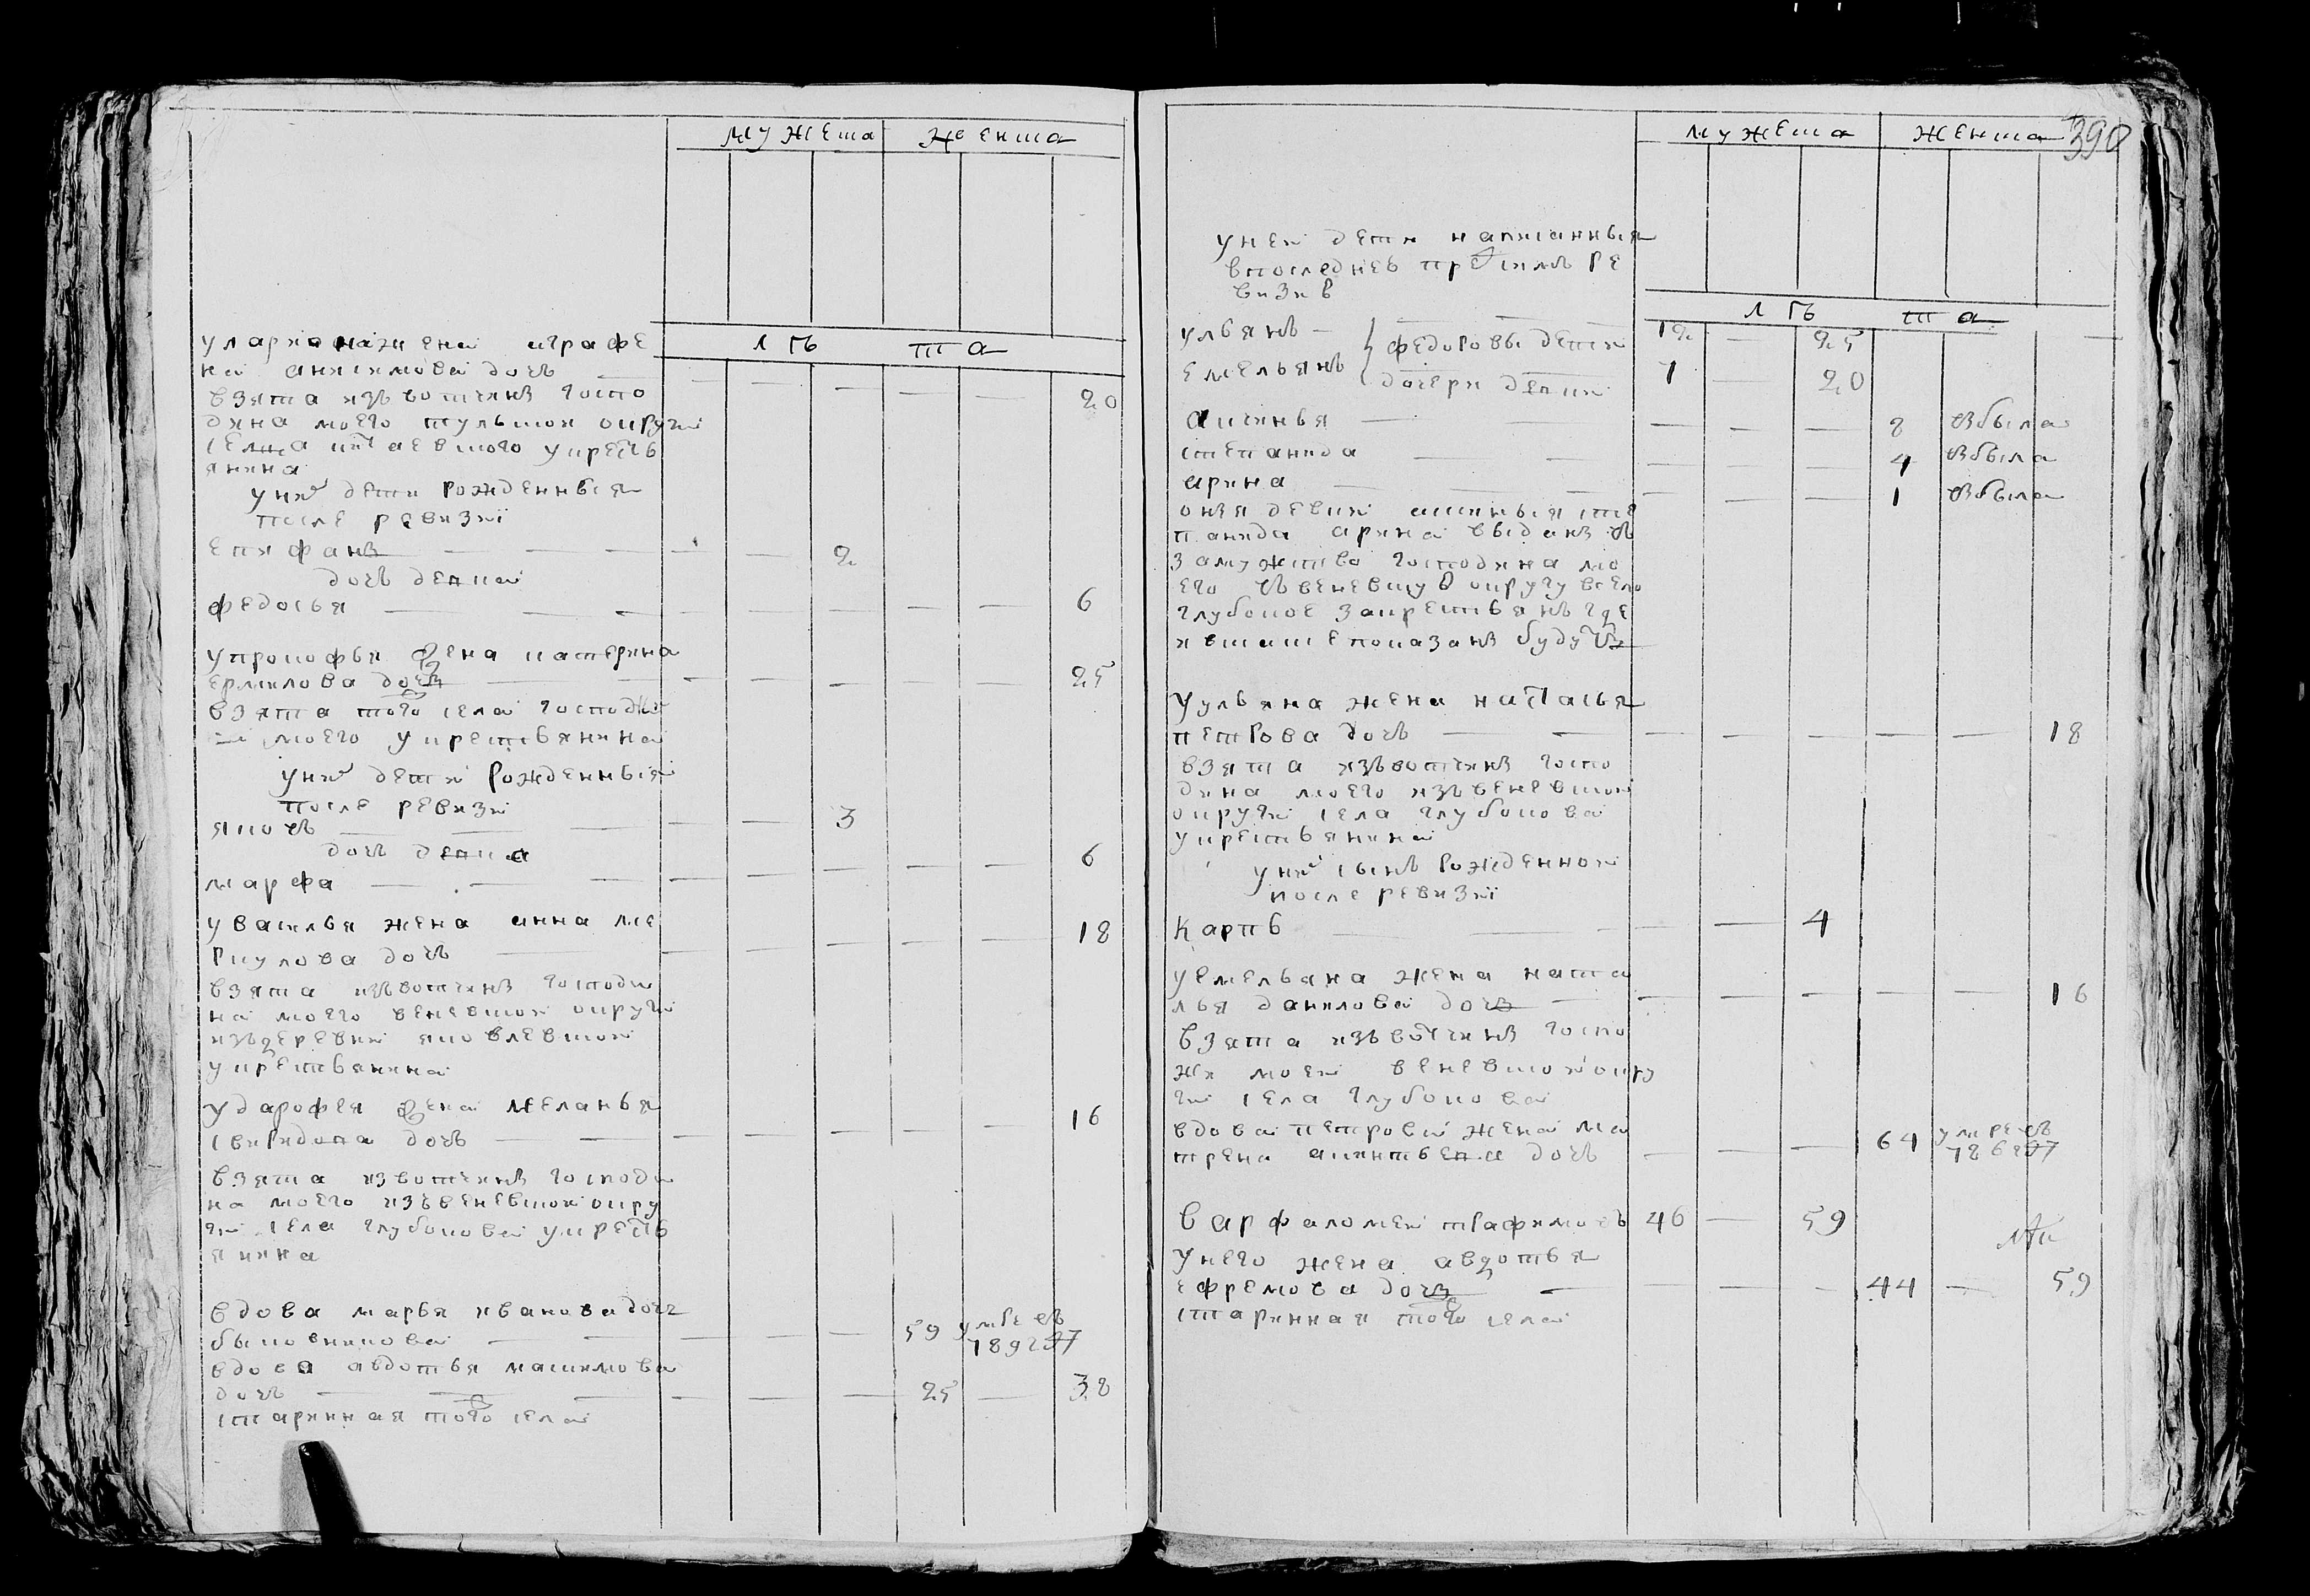 мужеска женска
лѣ та
у лариона жена аграфе
на анисимова дочь
взята изъ вотчинъ госпо
дина моего тульской округи
села у крестъ
янина
у них дети рожденныя
после ревизіи
епифанъ 2
дочь девка
федосья 6
20
у прокофья жена катерина
ермилова дочь 25
взята того села господи
на моего у крестьянина
у них дети рожденныя
после ревизіи
яковъ 3
дочь девка
марфа 6
у василья жена анна ме
ркулова дочь 18
взята изъ вотчинъ господи
на моего веневской округи
изъ деревни яковлевской
у крестьянина
у дарофея жена меланья
свиридова дочь 16
взята из вотчинъ господи
на моего изъ веневской окру
ги села глубокова у кресть
янина
вдова марья иванова дочь
быковникова 59 умре въ
789 г
вдова авдотья максимова
дочь 25 38
старинная того села
390
мужеска женска
у ней дети написанныя
в последней пред симъ ре
визіи
лѣ та
ульянъ федоровы дети 12 25
емельянъ 7 20
дочери девки
аксинья 8 выбыла
степанида 4 выбыла
арина 1 выбыла
оные девки аксинья сте
панида арина выданы въ
замужство господина мо
его въ веневскую округу в село
глубокое за крестьянъ где
и въ сказке показаны будутъ
у ульяна жена наталья
петрова дочь 18
взята изъ вотчинъ госпо
дина моего изъ веневской
округи села глубокова
у крестьянина
у них сынъ рожденной
после ревизіи
карпъ 4
у емельяна жена ната
лья данилова дочь 16
взята изъ вотчинъ госпо
жи моей веневской окру
ги села глубокова
вдова петрова жена ма
трена дочь 64 умре въ
786 г
варфаломей трафимовъ 46 59
у него жена авдотья
ефремова дочь 44 59
старинная того села